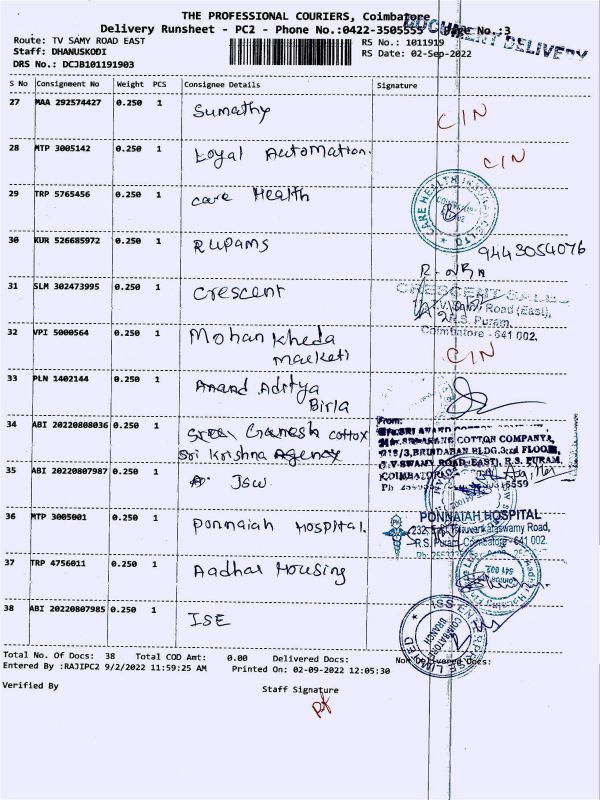 THE PROFESSIONAL COURIERS, Coimbatore
Delivery Runsheet - PC2 - Phone No.:0422-3505555 Page No.:3
DOCUMENT DELIVERY
Route: TV SAMY ROAD EAST RS No.: 1011919
Staff: DHANUSKODI RS Date: 02-Sep-2022
DRS No.: DCJB101191903
S No Consignment No Weight PCS Consignee Details Signature
27 MAA 292574427 0.250 1 Sumathy C/N
28 MTP 3005142 0.250 1 Loyal Automation. C/N
29 TRP 5765456 0.250 1 Care Health
CARE HEALTH
30 KUR 526685972 0.250 1 Rupams 9443054076
31 SLM 302473995 0.250 1 Crescent
CRESCENT SALES
Road (East),
R.S. Puram,
Coimbatore - 641 002.
32 VPI 5000564 0.250 1 Mohan Kheda
Marketi C/N
33 PLN 1402144 0.250 1 Anand Aditya
Birla
34 ABI 20220808036 0.250 1 Sree Ganesh cottox
Sri Krishna Agency
From:
COTTON COMPANY,
215/3, BRINDABAN BLDG, 3rd FLOOR,
T.V SWAMY ROAD (EAST), R.S. PURAM,
COIMBATORE
35 ABI 20220807987 0.250 1 JSW
36 MTP 3005001 0.250 1 Ponnaiah Hospital.
PONNAIAH HOSPITAL
232, East Thiruvenkataswamy Road,
R.S. Puram, Coimbatore - 641 002.
37 TRP 4756011 0.250 1 Aadhar Housing
38 ABI 20220807985 0.250 1 ISE
Total No. Of Docs: 38 Total COD Amt: 0.00 Delivered Docs: Non Delivered Docs:
Entered By :RAJIPC2 9/2/2022 11:59:25 AM Printed On: 02-09-2022 12:05:30
Verified By Staff Signature